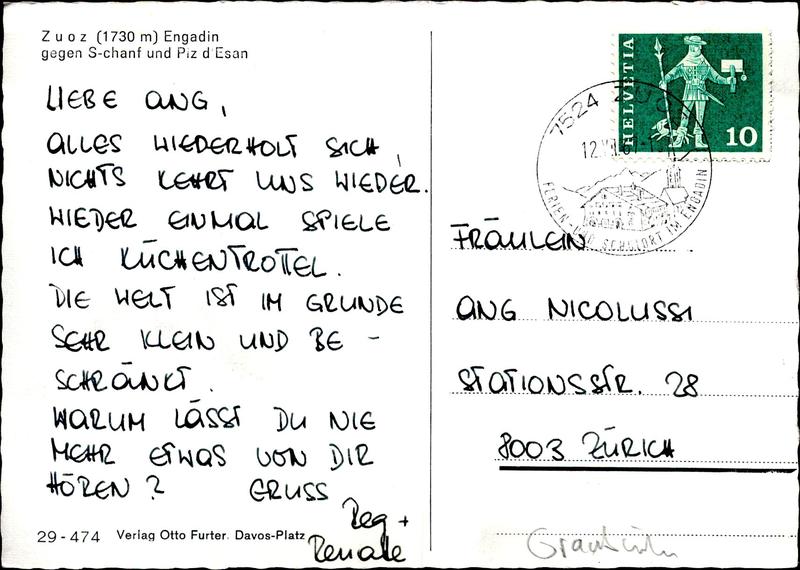 Zuoz (1730 m) Engadin
gegen S-chanf und Piz d'Esan
LIEBE ANG,
ALLES WIEDERHOLT SICH,
NICHTS KEHRT UNS WIEDER.
WIEDER EINMAL SPIELE
ICH KÜCHENTROTTEL.
DIE WELT IST IM GRUNDE
SEHR KLEIN UND BE-
SCHRÄNKT.
WARUM LÄSST DU NIE
MEHR ETWAS VON DIR
HÖREN? GRUSS
Reg +
Renate
29-474 Verlag Otto Furter, Davos-Platz
HELVETIA
10
7524 ZUOZ
FERIEN- UND SCHULORT IM ENGADIN
FRÄULEIN
ANG NICOLUSSI
STATIONSSTR. 28
8003 ZÜRICH